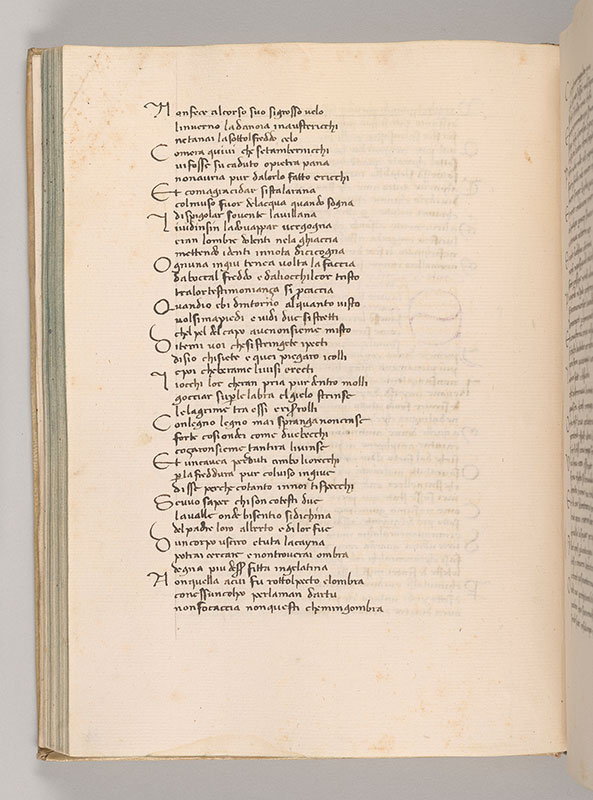 Non fece alcorso suo si grosso velo
linverno la danoia in austericchi
ne tanai la sottol freddo celo
Comera quivi che setambernicchi
vi fosse su caduto o pietra pana
non auria pur dalorlo fatto cricchi
Et come a gracidar si sta la rana
col muso fuor delacqua quando sogna
di spigolar sovente la villana
Livide insin la dovappar vergogna
eran lombre dolenti nela ghiaccia
mettendo identi in nota di cicogna
Ognuna in giu tenea volta la faccia
da boccal freddo e daliocchil cor tristo
tralor testimonianza si pcaccia
Quandio ebi dintorno alquanto visto
volsimapiedi e vidi due si stretti
chel pel del capo aveno insieme misto
Ditemi voi che si stringete i pecti
dissio chi siete e quei piegaro icolli
e poi chebber a me li visi erecti
Liocchi lor cheran pria pur dentro molli
gocciar su ple labra el gielo strinse
le lagrime tra essi e riserrolli
Con legno legno mai spranga non cinse
forte cosi ondei come due becchi
cozzaro insieme tanta ira li vinse
Et un cavea perduti ambo liorecchi
p la freddura pur col viso in giue
disse perche cotanto in noi ti specchi
Se vuo saper chi son cotesti due
la valle onde bisentio si dichina
del padre loro alberto e di lor fue
Duncorpo usciro e tuta la cayna
potrai cercare e non troverai ombra
degna piu desser fitta in gelatina
Non quella a cui fu rottol pecto e lombra
con essuncolpo per la man dartu
non focaccia non questi che mingombra